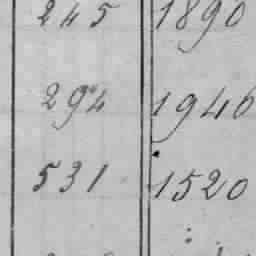 245 1890
294 1946
531 1520